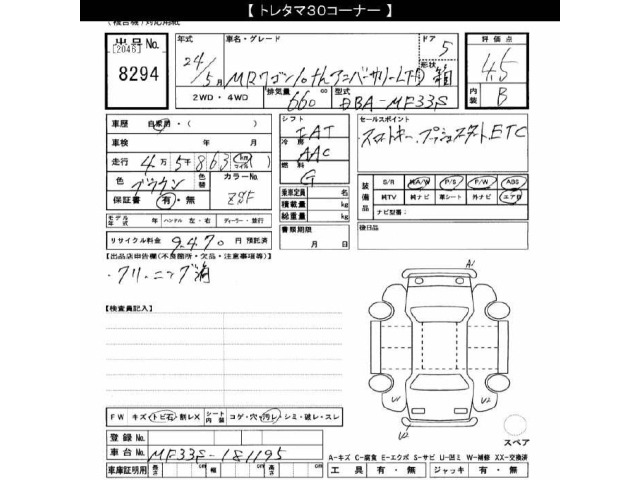 【 トレタマ30コーナー 】
(複合機)対応用紙
出品No.
[2046]
8294
年式
24/5月
車名・グレード
MRワゴン10thアニバーサリーLTD
ドア
5
形状
箱
2WD ・ 4WD
排気量
660 cc
型式
DBA-MF33S
評価点
4.5
内装
B
車歴 自家用・( )
車検 年 月
走行 4万5千863 (km マイル)
色 ブラウン
色替
カラーNo. ZSF
保証書 有・無
モデル年式 年 ハンドル 左・右 ディーラー・並行
リサイクル料金 9,470 円 預託済
シフト
IAT
冷房
AAC
燃料
G
乗車定員 名
積載量 kg
総重量 kg
書類期限
月 日
セールスポイント
・スマートキー、プッシュスタート ETC
装備品
S/R M/A/W P/S P/W ABS
MTV 純ナビ 革シート 外ナビ エアB
ナビ型番:
後日品
【出品店申告欄(不良箇所・欠品・注意事項等)】
・クリーニング済
【検査員記入】
FW キズ・トビ石・割レX シート内装 コゲ・穴・汚レ・シミ・破レ・スレ
登録No.
車台No. MF33S-181195
車庫証明用 長さ cm 幅 cm 高さ cm
A1
U1
U2
W2
スペア
A-キズ C-腐食 E-エクボ S-サビ U-凹ミ W-補修 XX-交換済
工具 有・無 ジャッキ 有・無